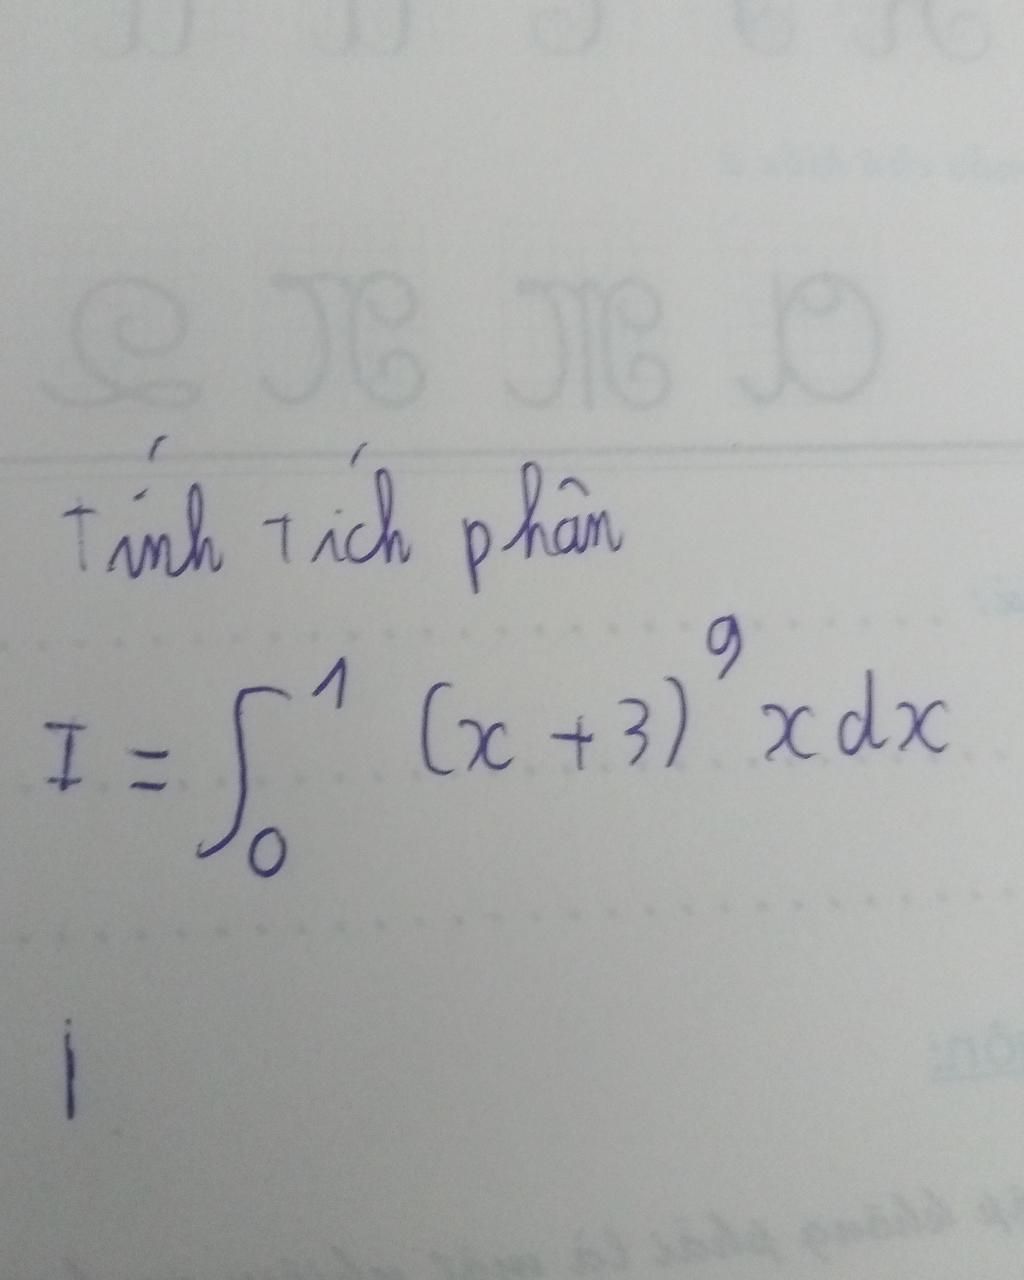 Tính tích phân
I = ∫₀¹ (x + 3)⁹ x dx